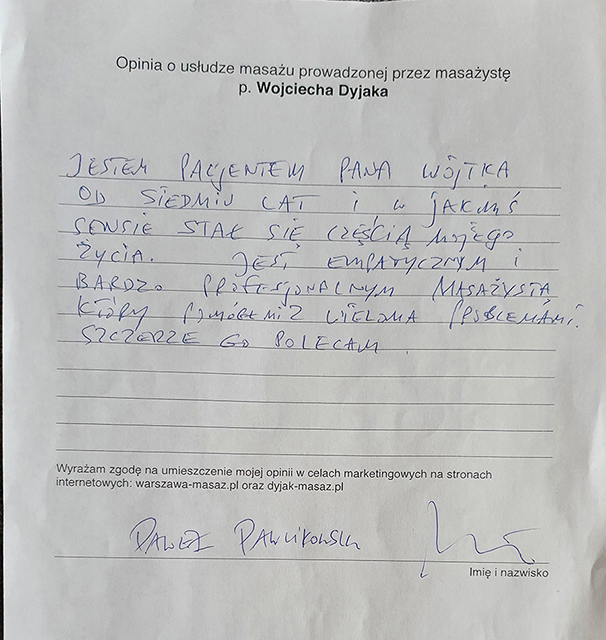 Opinia o usłudze masażu prowadzonej przez masażystę
p. Wojciecha Dyjaka
JESTEM PACJENTEM PANA WÓJTKA
OD SIEDMIU LAT I W JAKIMŚ
SENSIE STAŁ SIĘ CZĘŚCIĄ MOJEGO
ŻYCIA. JEST EMPATYCZNYM I
BARDZO PROFESJONALNYM MASAŻYSTĄ
KTÓRY POMÓGŁ MI Z WIELOMA PROBLEMAMI.
SZCZERZE GO POLECAM.
Wyrażam zgodę na umieszczenie mojej opinii w celach marketingowych na stronach
internetowych: warszawa-masaz.pl oraz dyjak-masaz.pl
PAWEŁ PAWLIKOWSKI
Imię i nazwisko